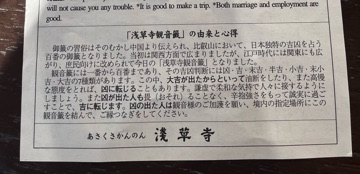 will not cause you any trouble. *It is good to make a trip. *Both marriage and employment are
good.
「浅草寺観音籤」の由来と心得
御籤の習俗はそのむかし中国より伝えられ、比叡山において、日本独特の吉凶を占う
百番の御籤となりました。当初は関西方面で広まりましたが、江戸時代には関東にも広
がり、庶民向けに改められて今日の「浅草寺観音籤」となりました。
観音籤には一番から百番まであり、その吉凶判断には凶・吉・末吉・半吉・小吉・末小
吉・大吉の種類があります。この中、大吉が出たからといって油断をしたり、また高慢
な態度をとれば、凶に転じることもあります。謙虚で柔和な気持で人々に接するように
しましょう。また凶が出た人も畏（おそ）れることなく、辛抱強さをもって誠実に過ご
すことで、吉に転じます。凶の出た人は観音様のご加護を願い、境内の指定場所にこの
観音籤を結んで、ご縁つなぎをしてください。
あさくさかんのん 浅草寺